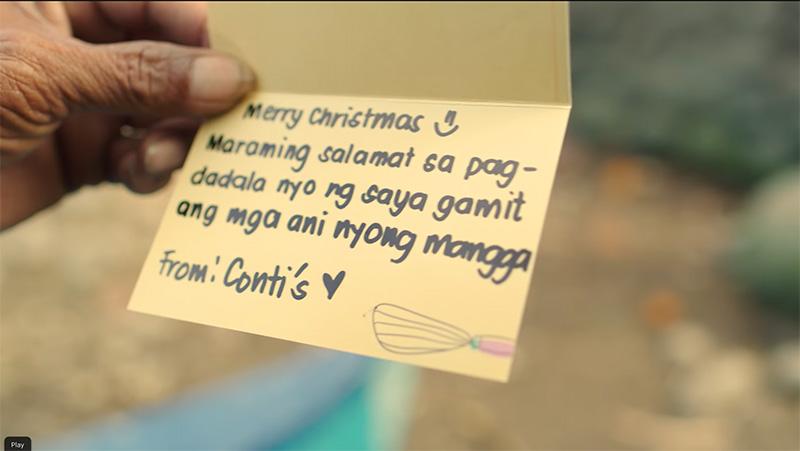 Merry Christmas
Maraming salamat sa pag-
dadala nyo ng saya gamit
ang mga ani nyong mangga
From: Conti's ♥
Play